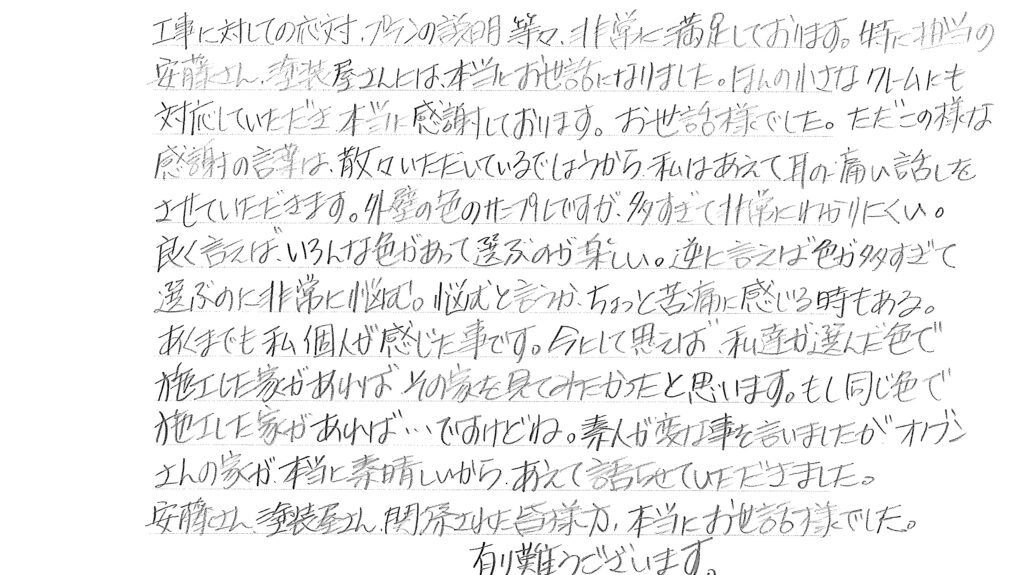 工事に対しての応対、プランの説明等々、非常に満足しております。特に担当の
安藤さん、塗装屋さんには、本当にお世話になりました。ほんの小さなクレームにも
対応していただき、本当に感謝しております。お世話様でした。ただこの様な
感謝の言葉は、散々いただいているでしょうから、私はあえて耳の痛い話しを
させていただきます。外壁の色のサンプルですが、多すぎて非常にわかりにくい。
良く言えば、いろんな色があって選ぶのが楽しい。逆に言えば色が多すぎて
選ぶのに非常に悩む。悩むと言うか、ちょっと苦痛に感じる時もある。
あくまでも私個人が感じた事です。今にして思えば、私達が選んだ色で
施工した家があれば その家を見てみたかったと思います。もし同じ色で
施工した家があれば…ですけどね。素人が変な事を言いましたがオノブン
さんの家が、本当に素晴しいから、あえて話らせていただきました。
安藤さん、塗装屋さん、関係された皆様方、本当にお世話様でした。
有り難うございます。